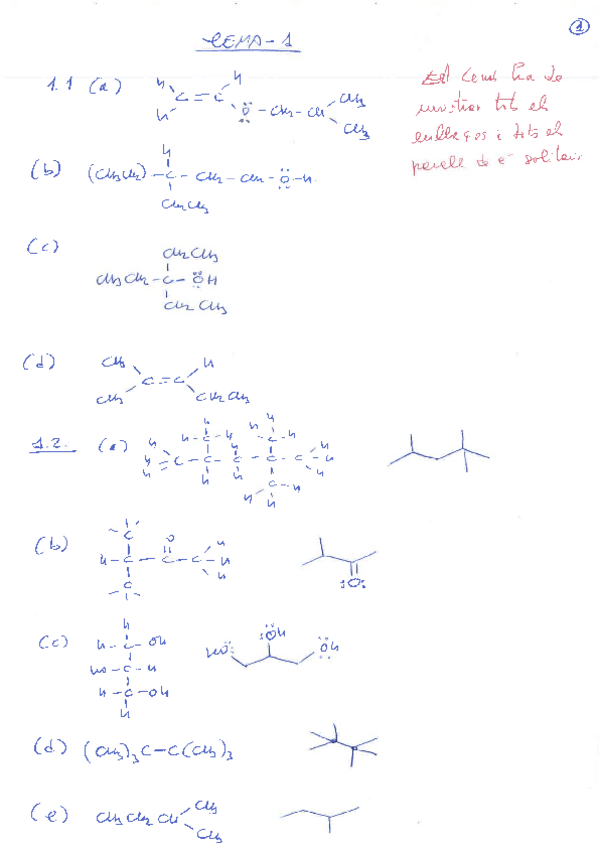 1
TEMA-1
1.1 (a) H H C=C H Ö-CH2-CH CH3 CH3
tots els
enllaços i tots el
parells de e- solitaris
(b) (CH3CH2) -C- CH2-CH2-Ö-H
H
CH2CH3
(c)
CH2CH3
CH3CH2-C-ÖH
CH2CH3
(d) CH3 H
C=C
CH3 CH2CH3
1.2. (a) H H H H H H
H C-C-C-C-C H
C H
(b) C O H
H-C-C-C-H
C H
:O:
(c) H
H-C-OH
HO-C-H
H-C-OH
H
HO :OH OH
(d) (CH3)3C-C(CH3)3
(e) CH3CH2CH CH3
CH3